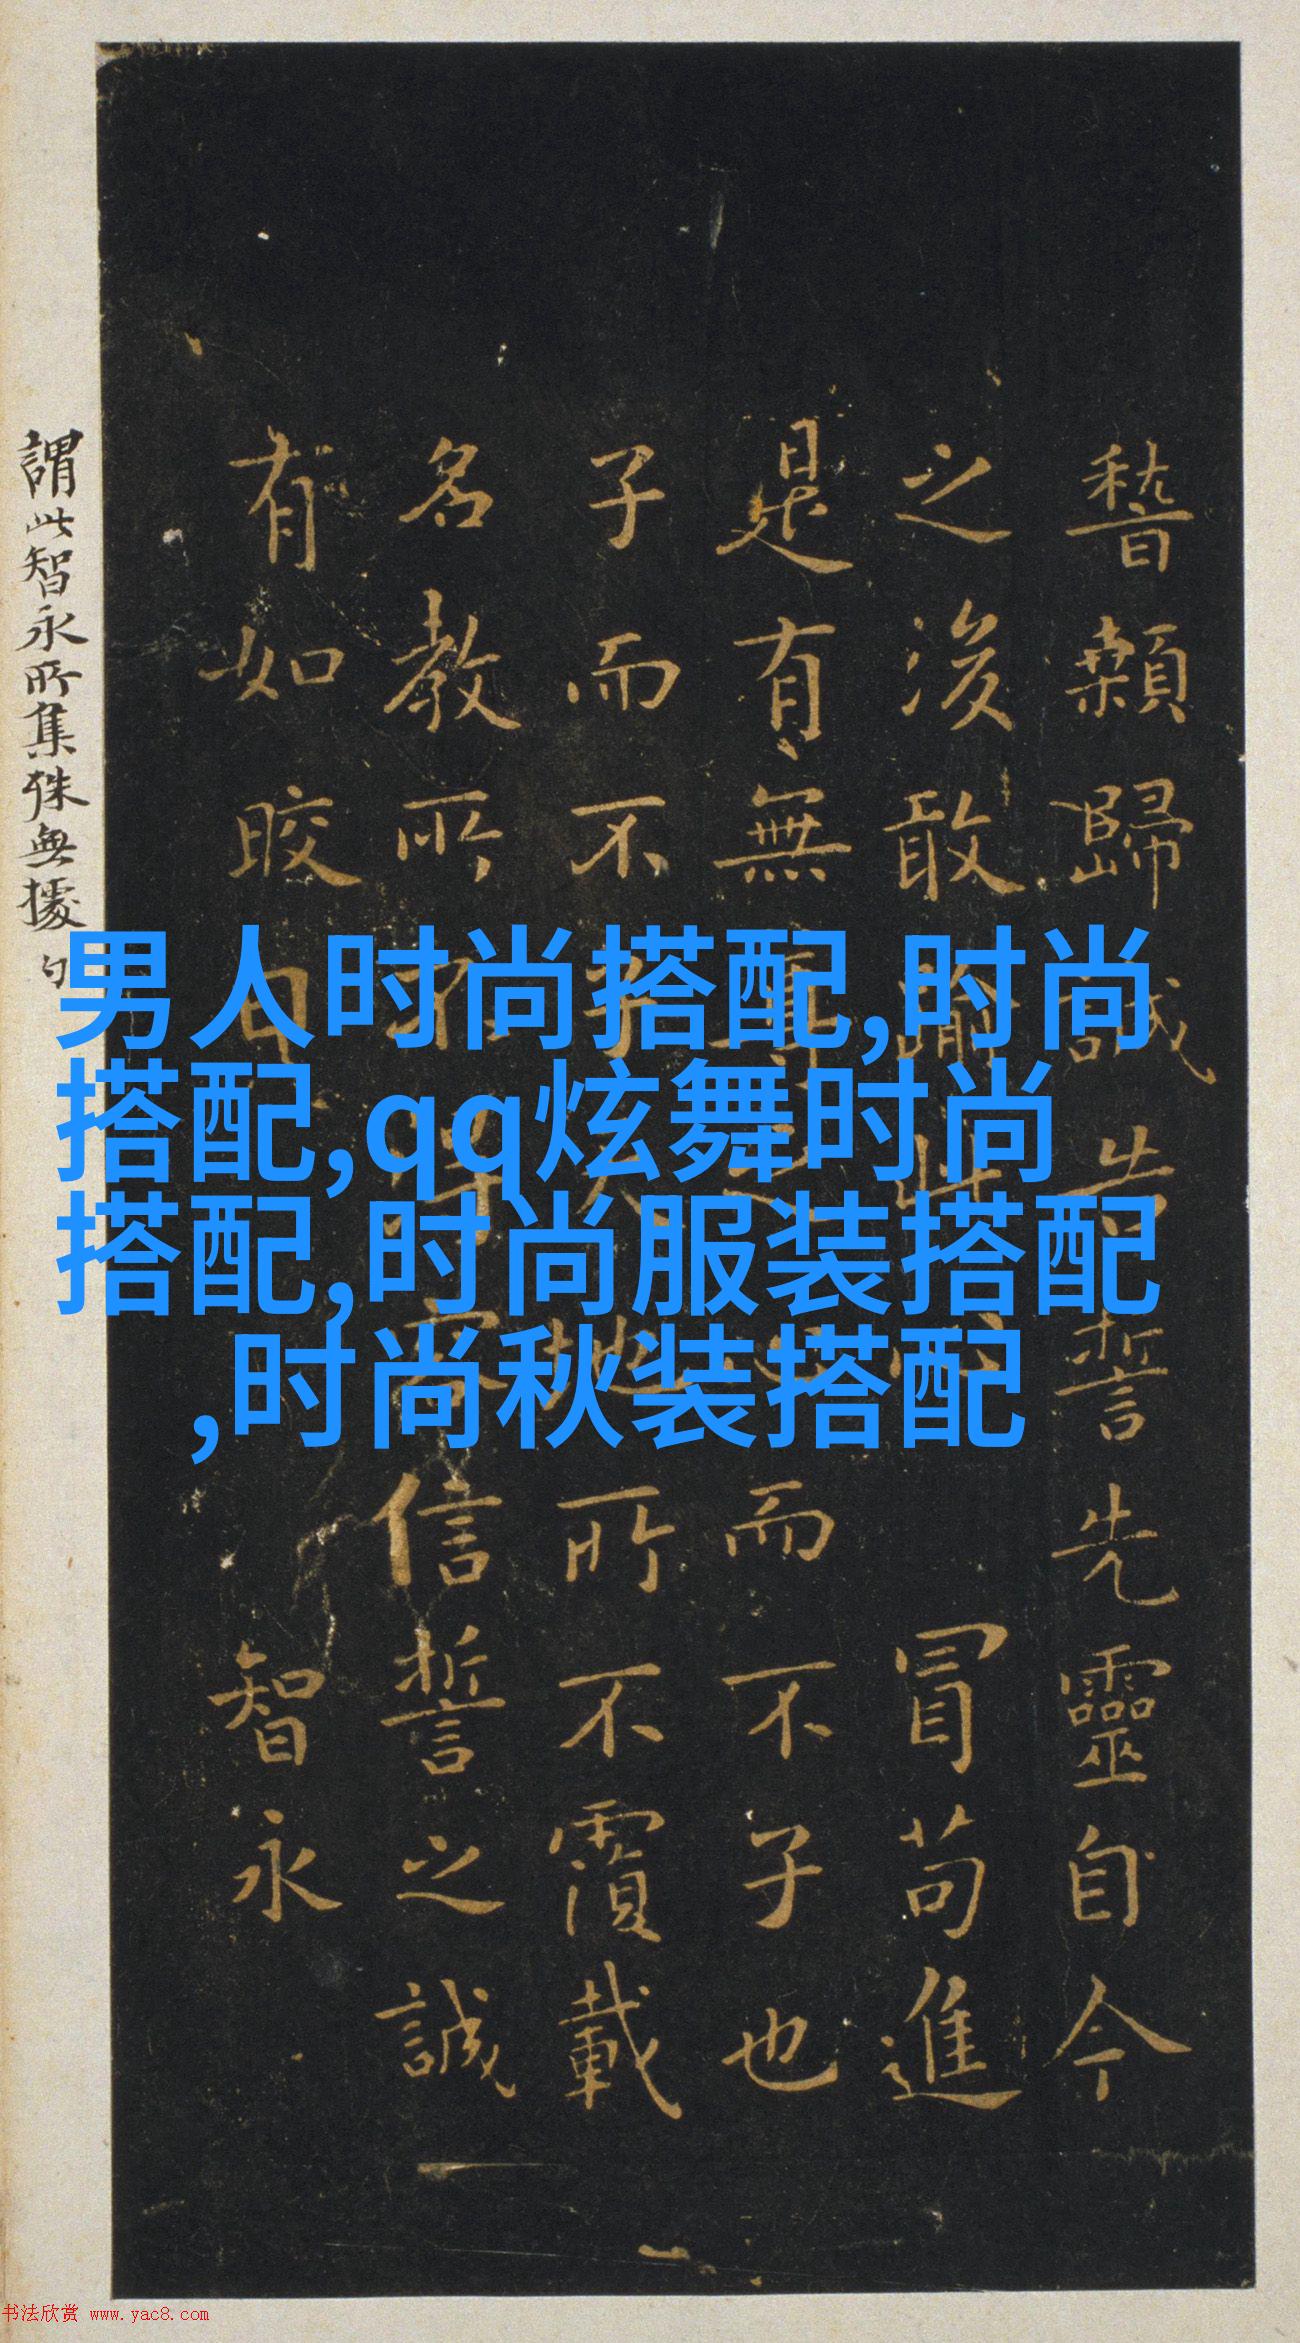 稽顙歸誠告誓先靈自今
之後敢渝此心冒苟進
是有無尊之心而不子也
子而不子天地所不覆載
名教所不得容信誓之誠
有如晈日 智永
謂此智永所集殊無據
男人时尚搭配,时尚
搭配,qq炫舞时尚
搭配,时尚服装搭配
,时尚秋装搭配
书法欣赏 www.yac8.com